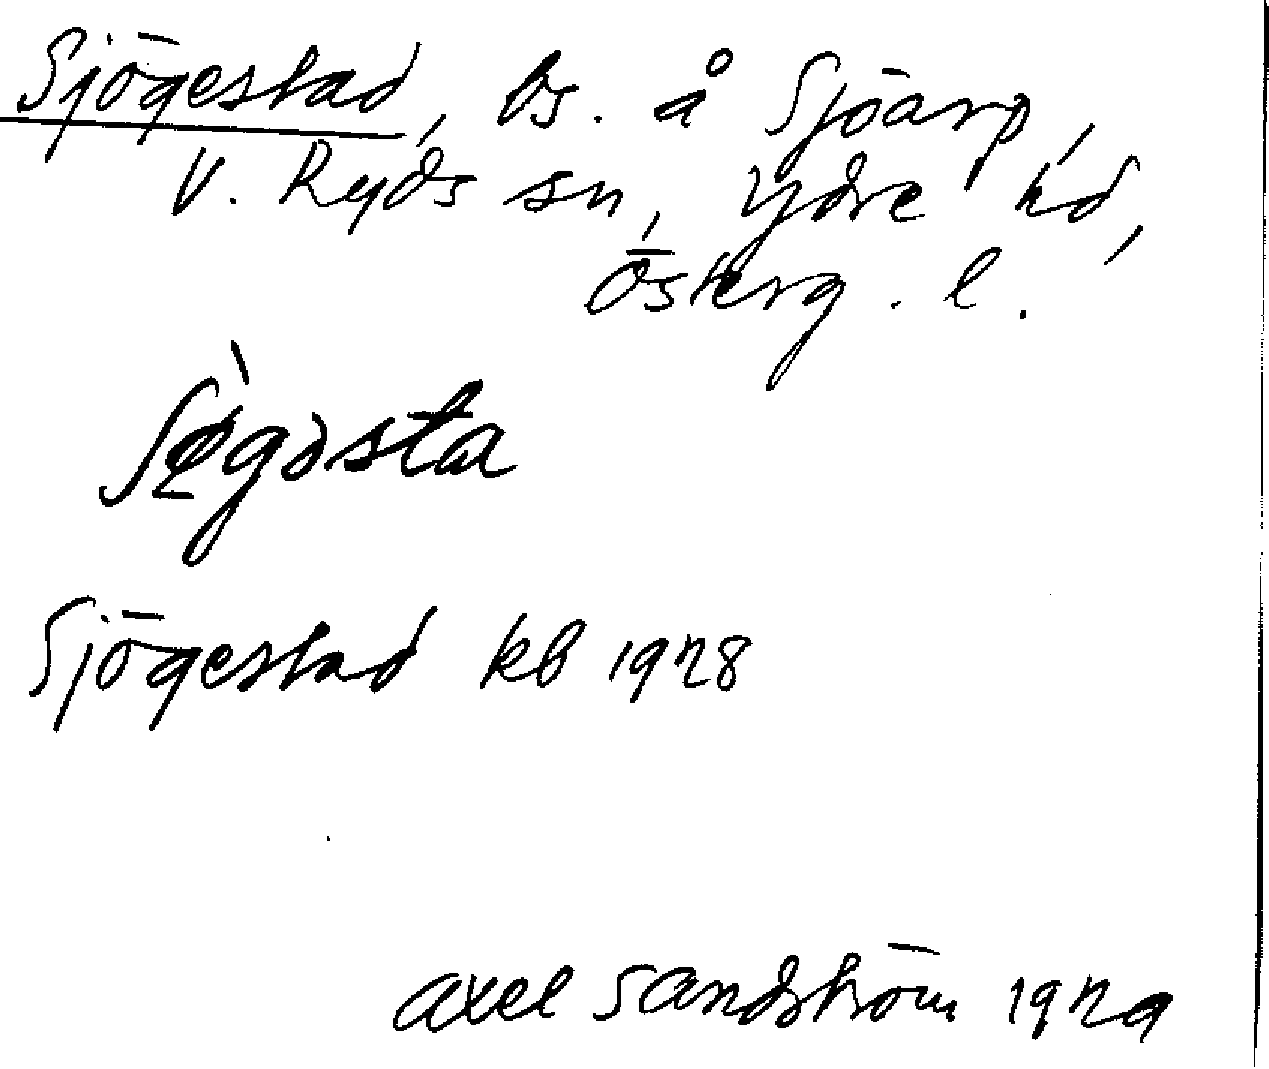 Sjögestad, bs. å Sjöarp,
V. Ryds sn, Ydre hd,
Österg. l.
Sjögestad kb 1928
Axel Sandström 1929